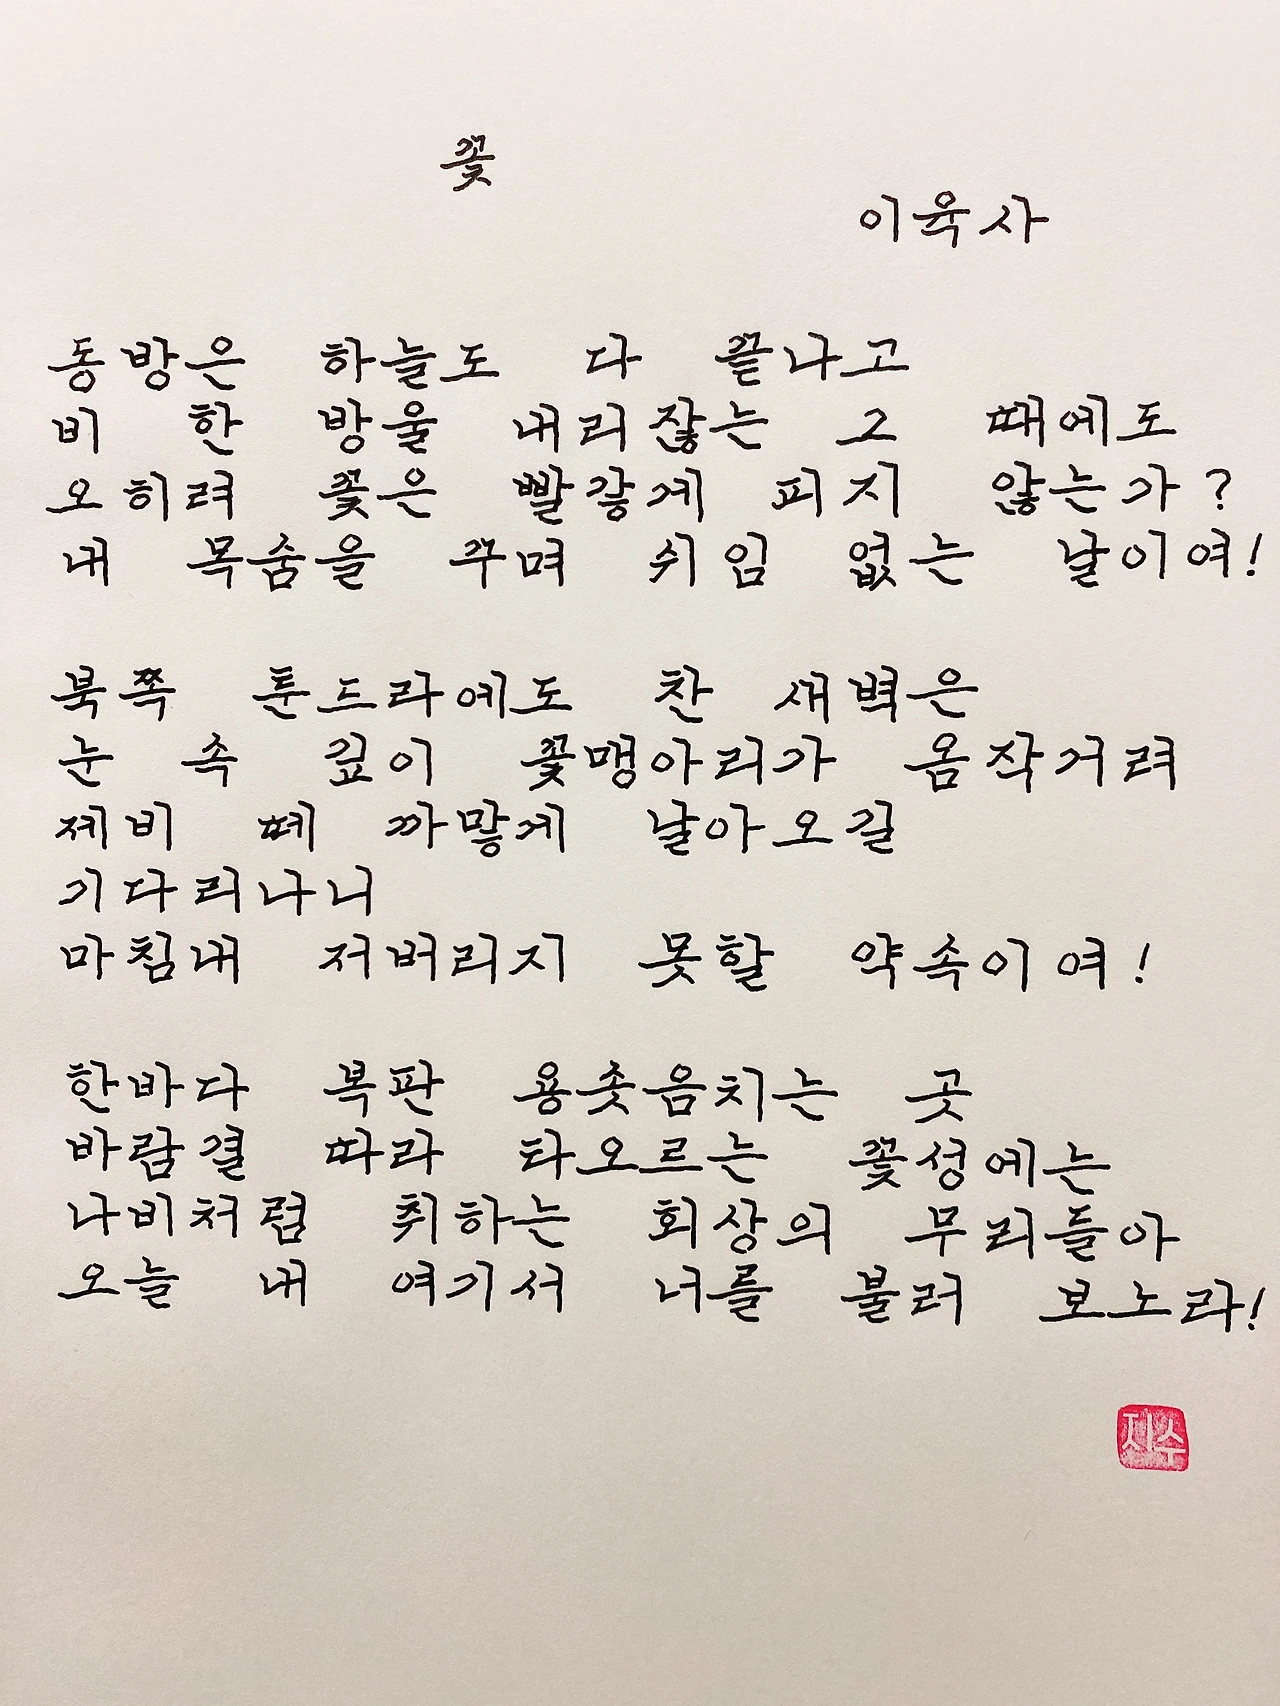 꽃
이육사
동방은 하늘도 다 끝나고
비 한 방울 내리잖는 그 때에도
오히려 꽃은 빨갛게 피지 않는가?
내 목숨을 꾸며 쉬임 없는 날이여!
북쪽 툰드라에도 찬 새벽은
눈 속 깊이 꽃맹아리가 옴작거려
제비 떼 까맣게 날아오길
기다리나니
마침내 저버리지 못할 약속이여!
한바다 복판 용솟음치는 곳
바람결 따라 타오르는 꽃성에는
나비처럼 취하는 회상의 무리들아
오늘 내 여기서 너를 불러 보노라!
지수